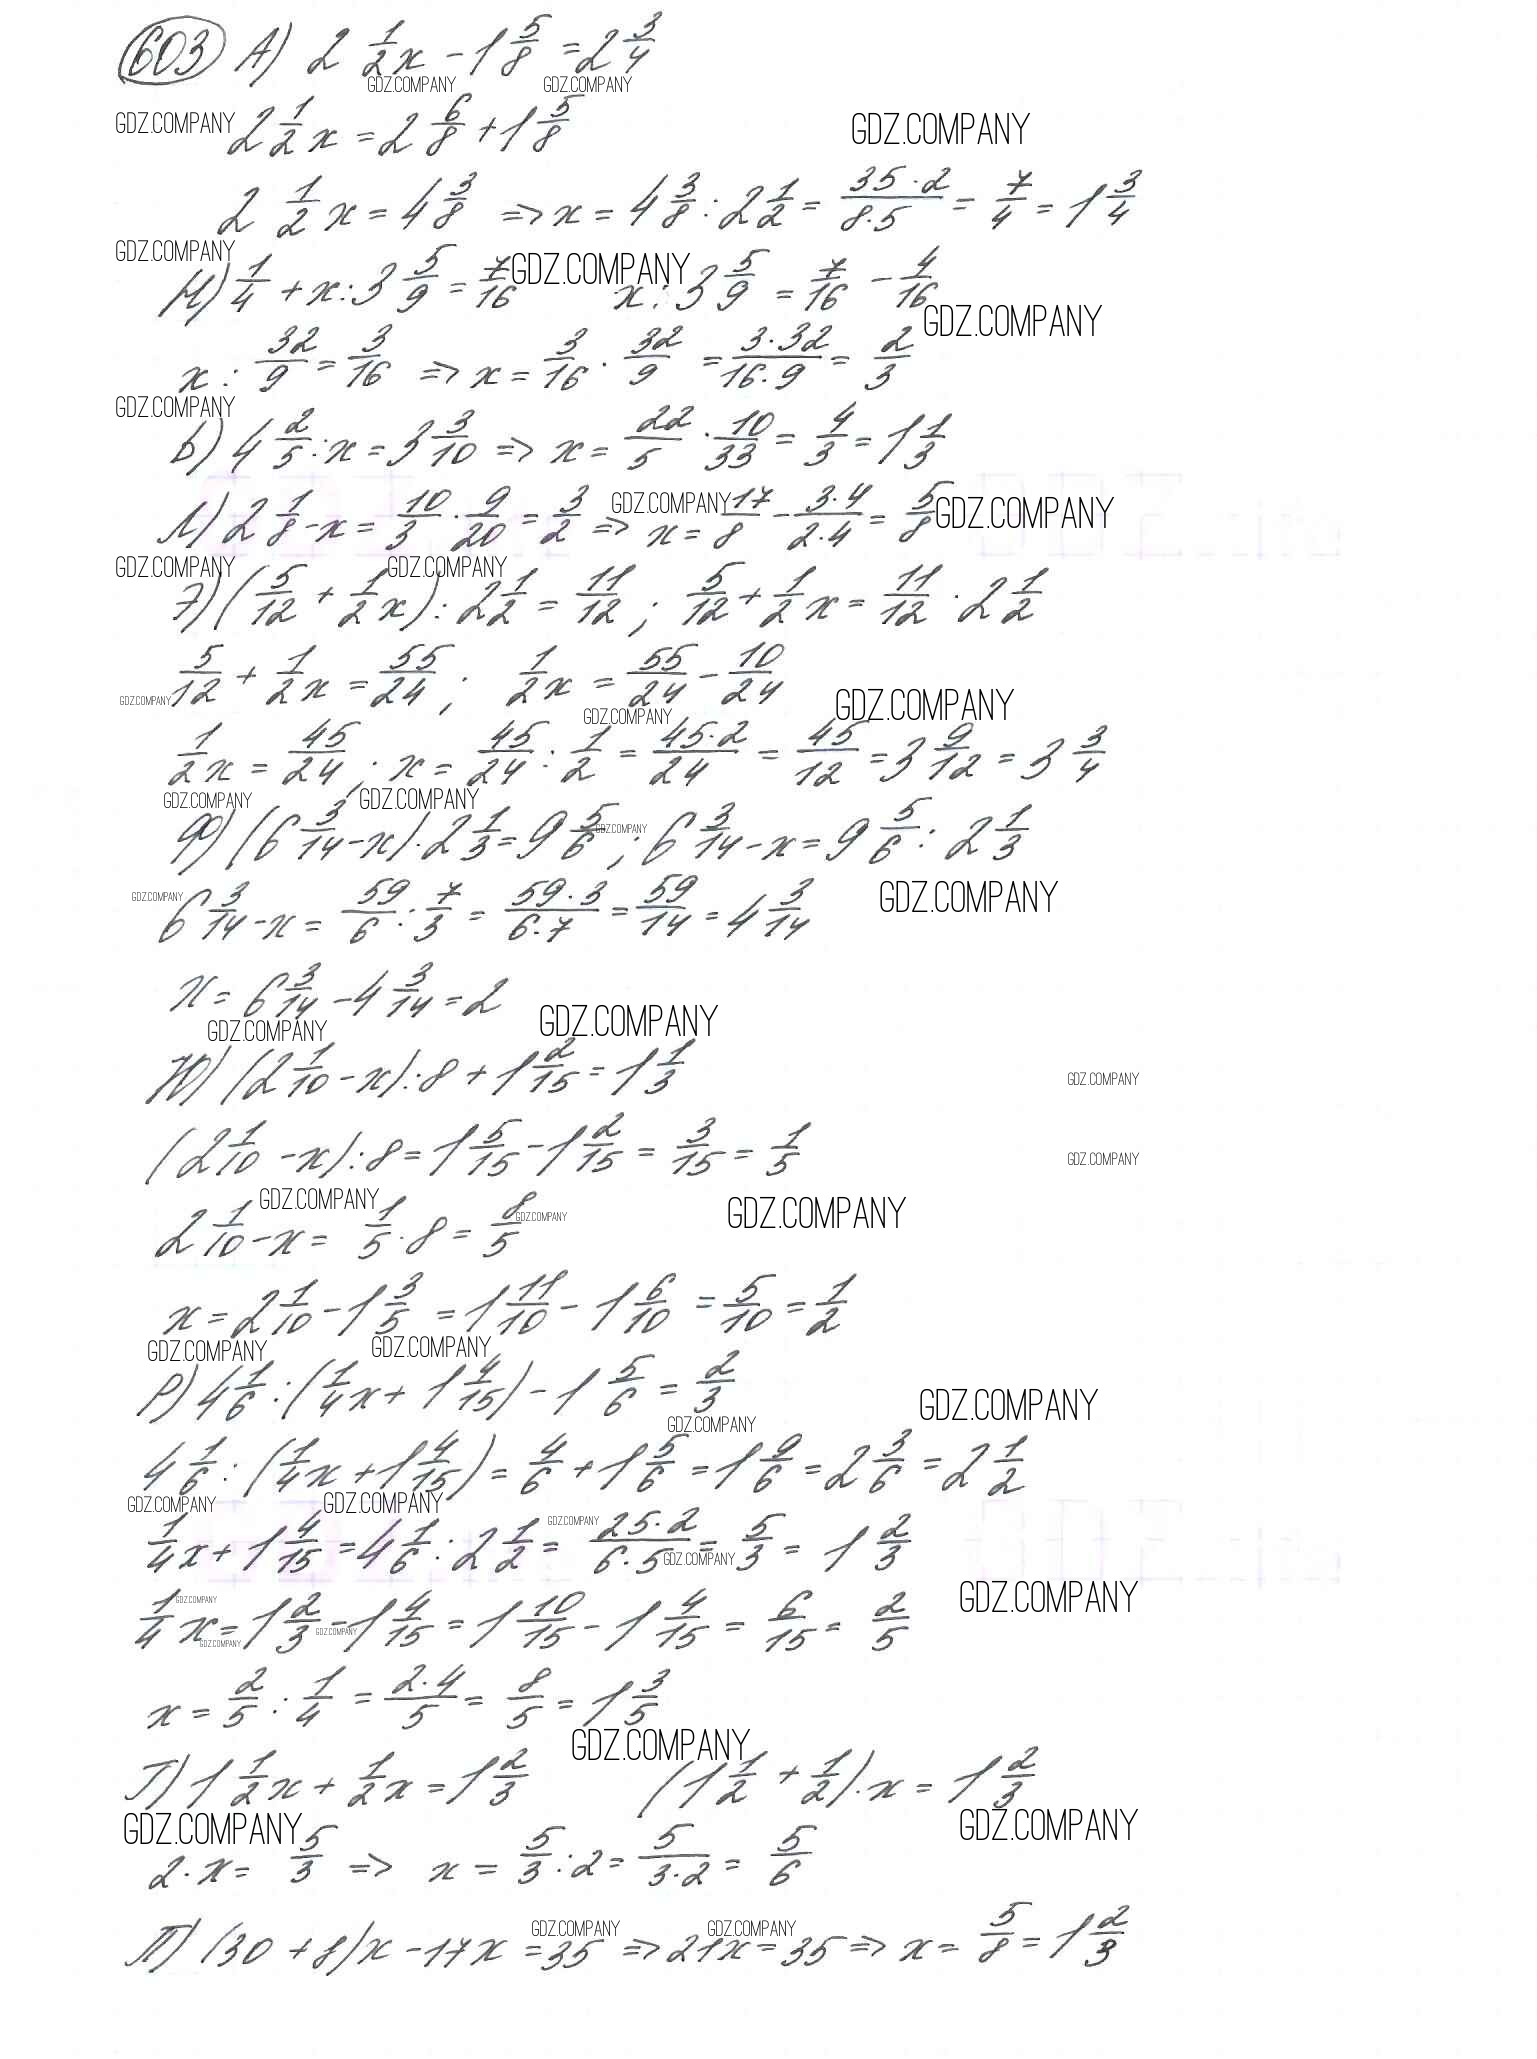 603 А) 2 1/2 x - 1 5/8 = 2 3/4
GDZ.COMPANY GDZ.COMPANY
GDZ.COMPANY 2 1/2 x = 2 6/8 + 1 5/8 GDZ.COMPANY
2 1/2 x = 4 3/8 => x = 4 3/8 : 2 1/2 = 35·2/8·5 = 7/4 = 1 3/4
GDZ.COMPANY
И) 1/4 + x : 3 5/9 = 7/16 GDZ.COMPANY x : 3 5/9 = 7/16 - 4/16
GDZ.COMPANY
x : 32/9 = 3/16 => x = 3/16 · 32/9 = 3·32/16·9 = 2/3
GDZ.COMPANY
Ь) 4 2/5 : x = 3 3/10 => x = 22/5 · 10/33 = 4/3 = 1 1/3
Л) 2 1/8 - x = 10/3 · 9/20 = 3/2 => GDZ.COMPANY x = 17/8 - 3·4/2·4 = 5/8 GDZ.COMPANY
GDZ.COMPANY GDZ.COMPANY
(5/12 + 1/2 x) : 2 1/2 = 11/12 ; 5/12 + 1/2 x = 11/12 · 2 1/2
5/12 + 1/2 x = 55/24 ; 1/2 x = 55/24 - 10/24
GDZ.COMPANY GDZ.COMPANY GDZ.COMPANY
1/2 x = 45/24 ; x = 45/24 : 1/2 = 45·2/24 = 45/12 = 3 9/12 = 3 3/4
GDZ.COMPANY GDZ.COMPANY
Ф) (6 3/14 - x) · 2 1/3 = 9 5/6 GDZ.COMPANY ; 6 3/14 - x = 9 5/6 : 2 1/3
GDZ.COMPANY 6 3/14 - x = 59/6 : 7/3 = 59·3/6·7 = 59/14 = 4 3/14 GDZ.COMPANY
x = 6 3/14 - 4 3/14 = 2
GDZ.COMPANY GDZ.COMPANY
Ю) (2 1/10 - x) : 8 + 1 2/15 = 1 1/3 GDZ.COMPANY
(2 1/10 - x) : 8 = 1 5/15 - 1 2/15 = 3/15 = 1/5 GDZ.COMPANY
GDZ.COMPANY GDZ.COMPANY GDZ.COMPANY
2 1/10 - x = 1/5 · 8 = 8/5
x = 2 1/10 - 1 3/5 = 1 11/10 - 1 6/10 = 5/10 = 1/2
GDZ.COMPANY GDZ.COMPANY
Р) 4 1/6 : (1/4 x + 1 4/15) - 1 5/6 = 2/3 GDZ.COMPANY
GDZ.COMPANY
4 1/6 : (1/4 x + 1 4/15) = 4/6 + 1 5/6 = 1 9/6 = 2 3/6 = 2 1/2
GDZ.COMPANY GDZ.COMPANY GDZ.COMPANY
1/4 x + 1 4/15 = 4 1/6 : 2 1/2 = 25·2/6·5 = 5/3 = 1 2/3
GDZ.COMPANY
GDZ.COMPANY GDZ.COMPANY
1/4 x = 1 2/3 - 1 4/15 = 1 10/15 - 1 4/15 = 6/15 = 2/5
GDZ.COMPANY GDZ.COMPANY
x = 2/5 : 1/4 = 2·4/5 = 8/5 = 1 3/5
GDZ.COMPANY
Г) 1 1/2 x + 1/2 x = 1 2/3 (1 1/2 + 1/2) · x = 1 2/3
GDZ.COMPANY GDZ.COMPANY
2 · x = 5/3 => x = 5/3 : 2 = 5/3·2 = 5/6
GDZ.COMPANY GDZ.COMPANY
П) (30 + 8)x - 17x = 35 => 21x = 35 => x = 5/8 = 1 2/3